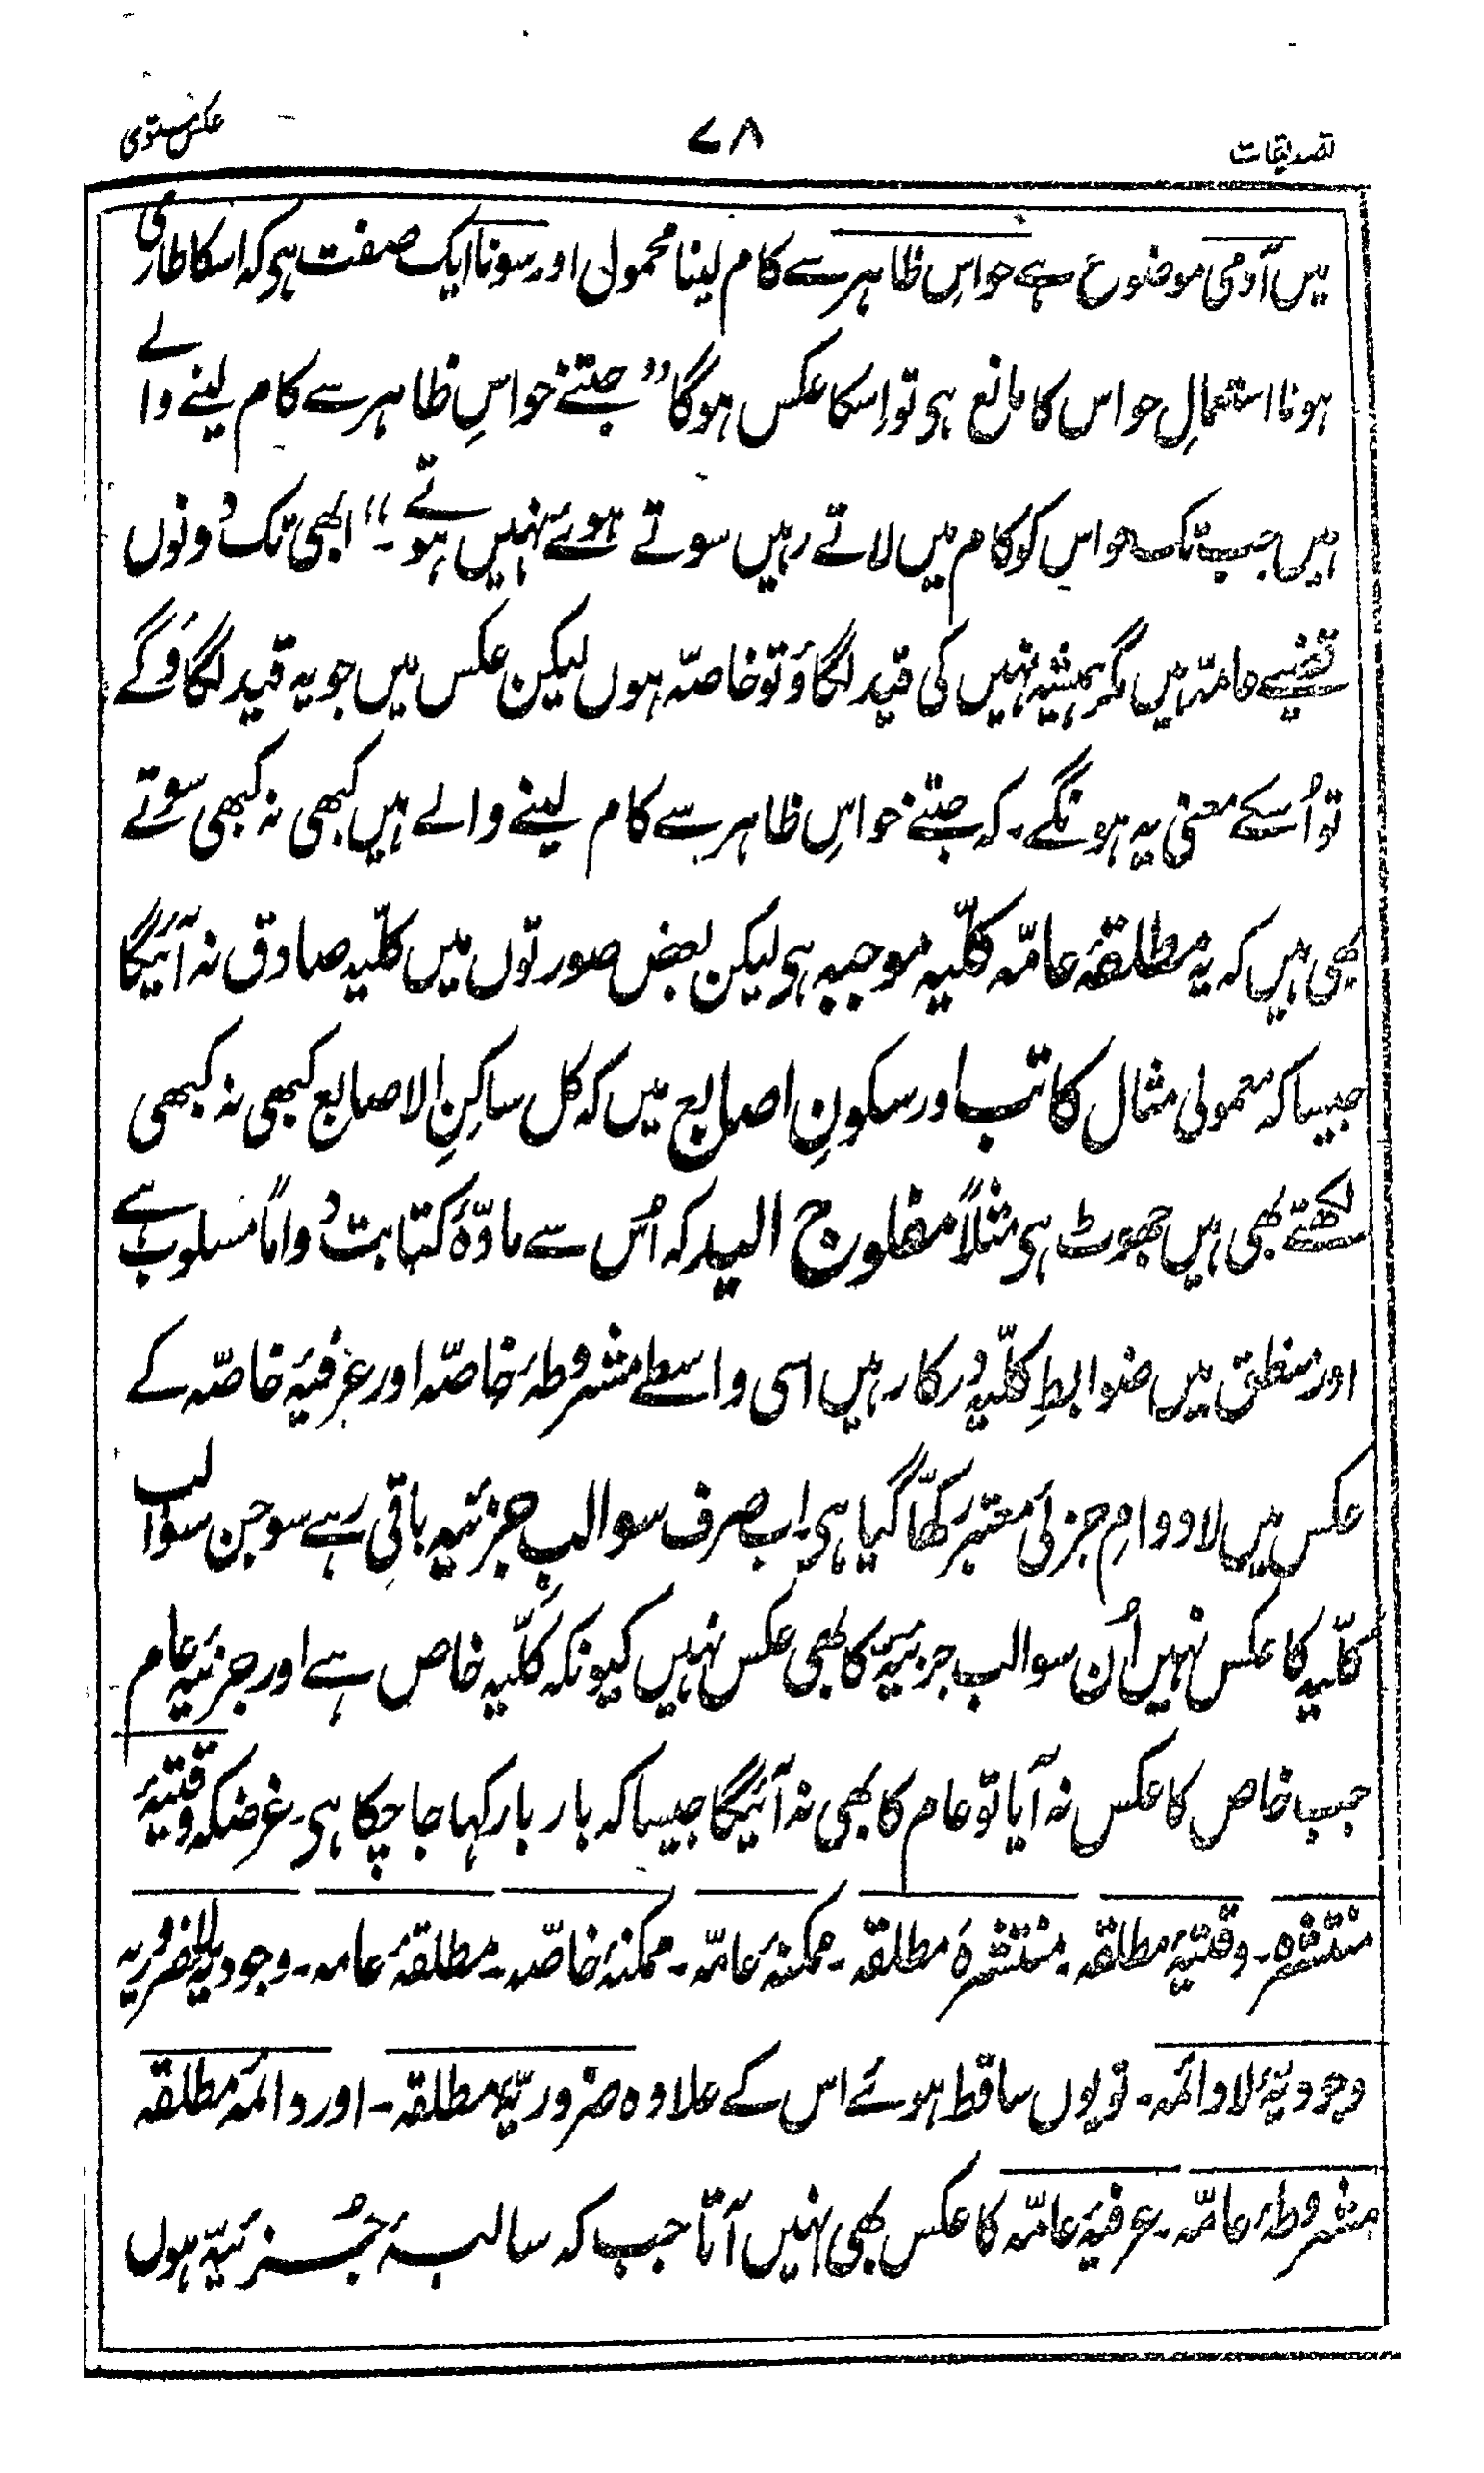 تصدیقات ۷۸ عکس مستوی
میں آدمی موضوع ہے حواسِ ظاہر سے کام لینا محمول اور سونا ایک صفت ہی کہ اسکا طاری
ہونا استعمالِ حواس کا مانع ہی تو اسکا عکس ہوگا “ جتنے حواسِ ظاہر سے کام لینے والے
ہیں جب تک حواس کو کام میں لاتے رہیں سوتے ہوئے نہیں ہوتے ۔“ ابھی تک دونوں
قضیے عامّہ ہیں مگر ہمیشہ نہیں کی قید لگاؤ تو خاصّہ ہوں لیکن عکس میں جو یہ قید لگاؤگے
تو اُسکے معنی یہ ہونگے۔ کہ جتنے حواسِ ظاہر سے کام لینے والے ہیں کبھی نہ کبھی سوتے
بھی ہیں کہ یہ مطلقۂ عامّہ کلّیہ موجبہ ہی لیکن بعض صورتوں میں کلّیہ صادق نہ آئیگا
جیسا کہ معمولی مثال کاتب اور سکونِ اصابع میں کہ کل ساکنِ الاصابع کبھی نہ کبھی
لکھتے بھی ہیں جھوٹ ہی مثلاً مفلوج الید کہ اُس سے مادّۂ کتابت دواماً مسلوب ہے
اور منطق میں ضوابطِ کلّیہ درکار ہیں اسی واسطے مشروطۂ خاصّہ اور عرفیۂ خاصّہ کے
عکس میں لا دوامِ جزئی معتبر رکھّا گیا ہی۔ اب صرف سوالب جزئیہ باقی رہے سو جن سوالب
کلّیہ کا عکس نہیں اُن سوالب جزئیہ کا بھی عکس نہیں کیونکہ کلّیہ خاص ہے اور جزئیہ عام
جب خاص کا عکس نہ آیا تو عام کا بھی نہ آئیگا جیسا کہ بار بار کہا جا چکا ہی۔ غرضکہ وقتیۂ
منتشرہ۔ وقتیۂ مطلقہ۔ منتشرہ مطلقہ۔ ممکنۂ عامّہ۔ ممکنۂ خاصّہ۔ مطلقۂ عامہ۔ وجودیۂ لاضروریہ
وجودیۂ لادائمہ۔ تو یوں ساقط ہوئے اس کے علاوہ ضروریۂ مطلقہ۔ اور دائمہ مطلقہ
مشروطۂ عامّہ۔ عرفیۂ عامّہ کا عکس بھی نہیں آتا جب کہ سالبۂ جُزئیّہ ہوں